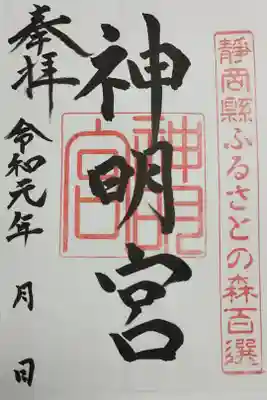 靜岡縣ふるさとの森百選
神明宮
神明宮
奉拝
令和元年 月 日